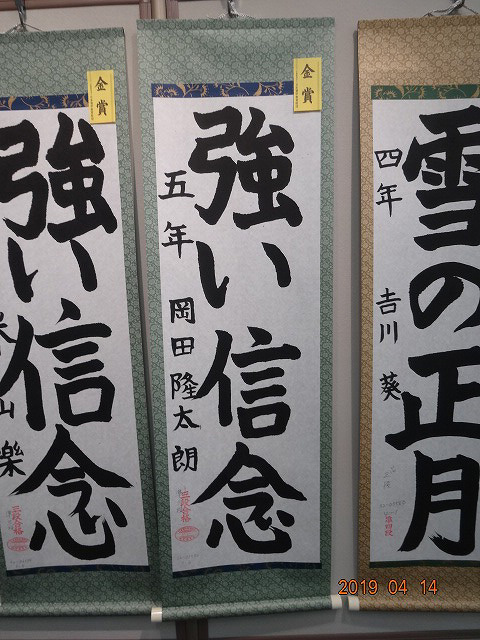 金賞
強い信念
五年 岡田隆太朗
金賞
強い信念
山樂
雪の正月
四年 吉川葵
2019 04 14